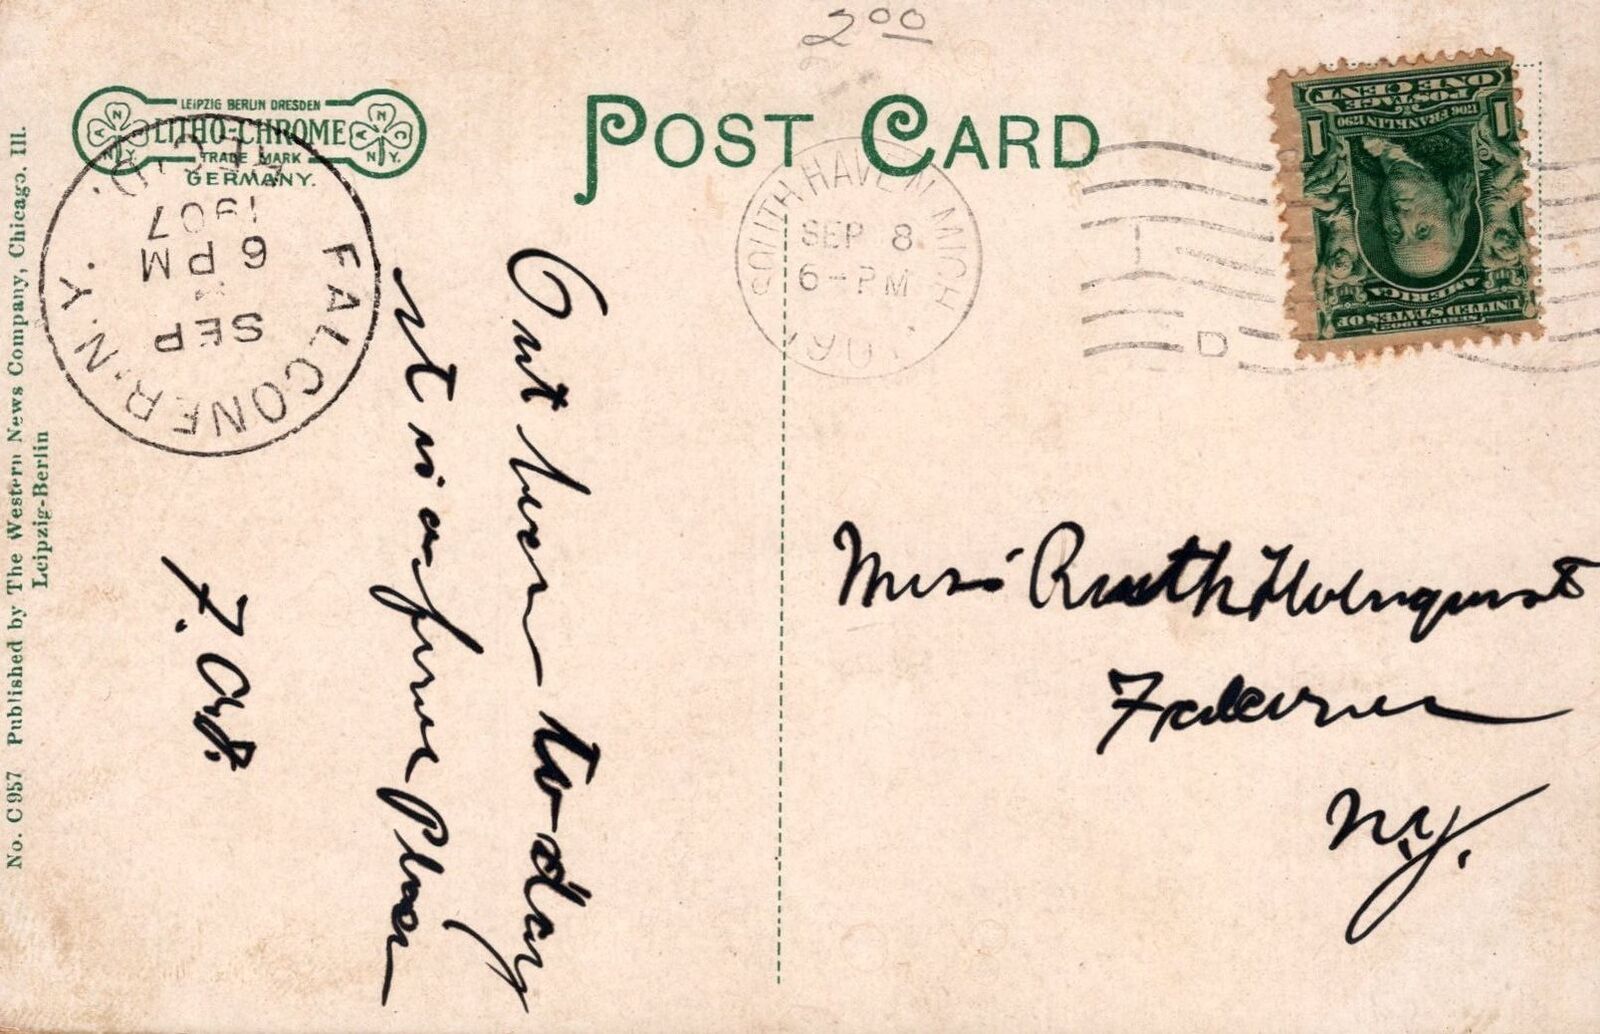 2 00
LEIPZIG BERLIN DRESDEN
LITHO-CHROME
TRADE MARK
GERMANY.
POST CARD
FALCONER. N.Y.
SEP
6 PM
1907
REC'D.
SOUTH HAVEN MICH
SEP 8
6-PM
190
D
SERIES 1902
UNITED STATES OF
AMERICA
1706 FRANKLIN 1790
POSTAGE
ONE CENT
1 1
Out here to-day
it is a fine Place
F. O.
Miss Ruth Holmquist
Falconer
N.Y.
No. C 957 Published by The Western News Company, Chicago, Ill.
Leipzig-Berlin